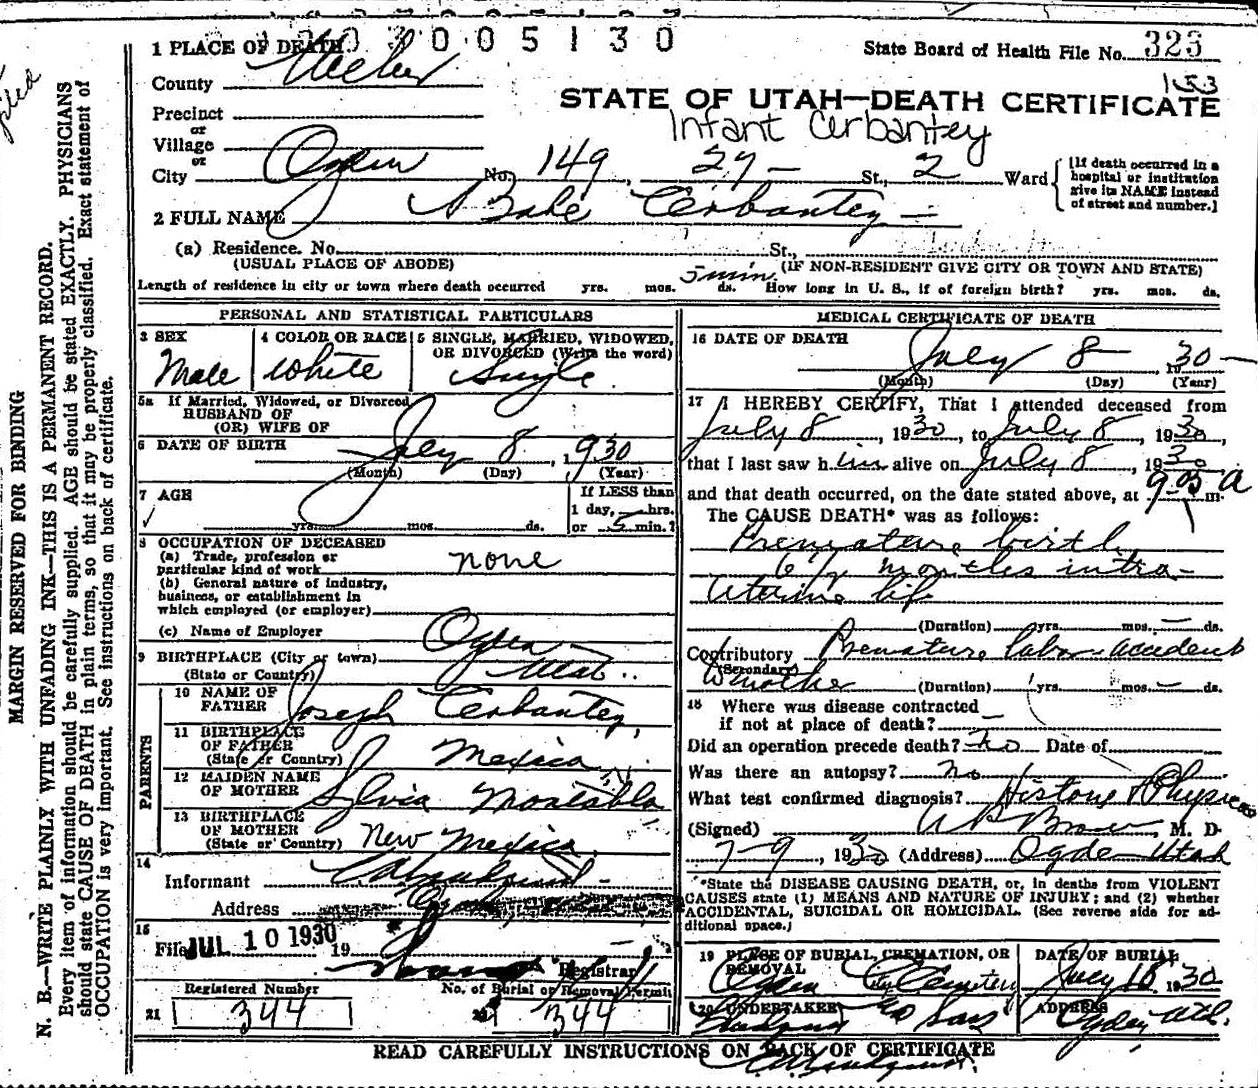 3 0 0 5 1 3 0
1 PLACE OF DEATH
State Board of Health File No. 323
County Weber
153
STATE OF UTAH—DEATH CERTIFICATE
Precinct
Infant Cerbantey
or
Village
or
City Ogden No. 149, 27 — St., 2 Ward
[If death occurred in a
hospital or institution
give its NAME instead
of street and number.]
2 FULL NAME Babe Cerbantey
(a) Residence. No. St.,
(USUAL PLACE OF ABODE) (IF NON-RESIDENT GIVE CITY OR TOWN AND STATE)
Length of residence in city or town where death occurred yrs. mos. 5 min ds. How long in U. S., if of foreign birth? yrs. mos. ds.
PERSONAL AND STATISTICAL PARTICULARS
3 SEX
Male
4 COLOR OR RACE
White
5 SINGLE, MARRIED, WIDOWED,
OR DIVORCED (Write the word)
Single
5a If Married, Widowed, or Divorced
HUSBAND OF
(OR) WIFE OF
6 DATE OF BIRTH July 8, 1930
(Month) (Day) (Year)
7 AGE
yrs. mos. ds.
If LESS than
1 day, hrs.
or 5 min.?
8 OCCUPATION OF DECEASED
(a) Trade, profession or
particular kind of work none
(b) General nature of industry,
business, or establishment in
which employed (or employer)
(c) Name of Employer
9 BIRTHPLACE (City or town) Ogden
(State or Country) Utah
PARENTS
10 NAME OF
FATHER Joseph Cerbantey
11 BIRTHPLACE
OF FATHER
(State or Country) Mexico
12 MAIDEN NAME
OF MOTHER Sylvia Montabla
13 BIRTHPLACE
OF MOTHER
(State or Country) New Mexico
14
Informant
Address
15
Filed JUL 10 1930 19
Registrar
Registered Number
No. of Burial or Removal Permit
21 344
22 344
MEDICAL CERTIFICATE OF DEATH
16 DATE OF DEATH July 8 1930
(Month) (Day) (Year)
17 I HEREBY CERTIFY, That I attended deceased from
July 8, 1930, to July 8, 1930,
that I last saw him alive on July 8, 1930
and that death occurred, on the date stated above, at 9-05 a m.
The CAUSE DEATH* was as follows:
Premature birth
6 1/2 months intra-
uterine life
(Duration) yrs. mos. ds.
Contributory Premature labor accident
(Secondary)
to mother (Duration) yrs. mos. ds.
18 Where was disease contracted
if not at place of death?
Did an operation precede death? No Date of
Was there an autopsy? no
What test confirmed diagnosis? History & Physical
(Signed) M. D.
7-9, 1930 (Address) Ogden Utah
*State the DISEASE CAUSING DEATH, or, in deaths from VIOLENT
CAUSES state (1) MEANS AND NATURE OF INJURY; and (2) whether
ACCIDENTAL, SUICIDAL OR HOMICIDAL. (See reverse side for ad-
ditional space.)
19 PLACE OF BURIAL, CREMATION, OR
REMOVAL
Ogden City Cemetery
DATE OF BURIAL
July 10 1930
20 UNDERTAKER
& Sons
ADDRESS
Ogden Utah.
READ CAREFULLY INSTRUCTIONS ON BACK OF CERTIFICATE
MARGIN RESERVED FOR BINDING
N. B.—WRITE PLAINLY WITH UNFADING INK—THIS IS A PERMANENT RECORD.
Every item of information should be carefully supplied. AGE should be stated EXACTLY. PHYSICIANS
should state CAUSE OF DEATH in plain terms, so that it may be properly classified. Exact statement of
OCCUPATION is very important. See instructions on back of certificate.